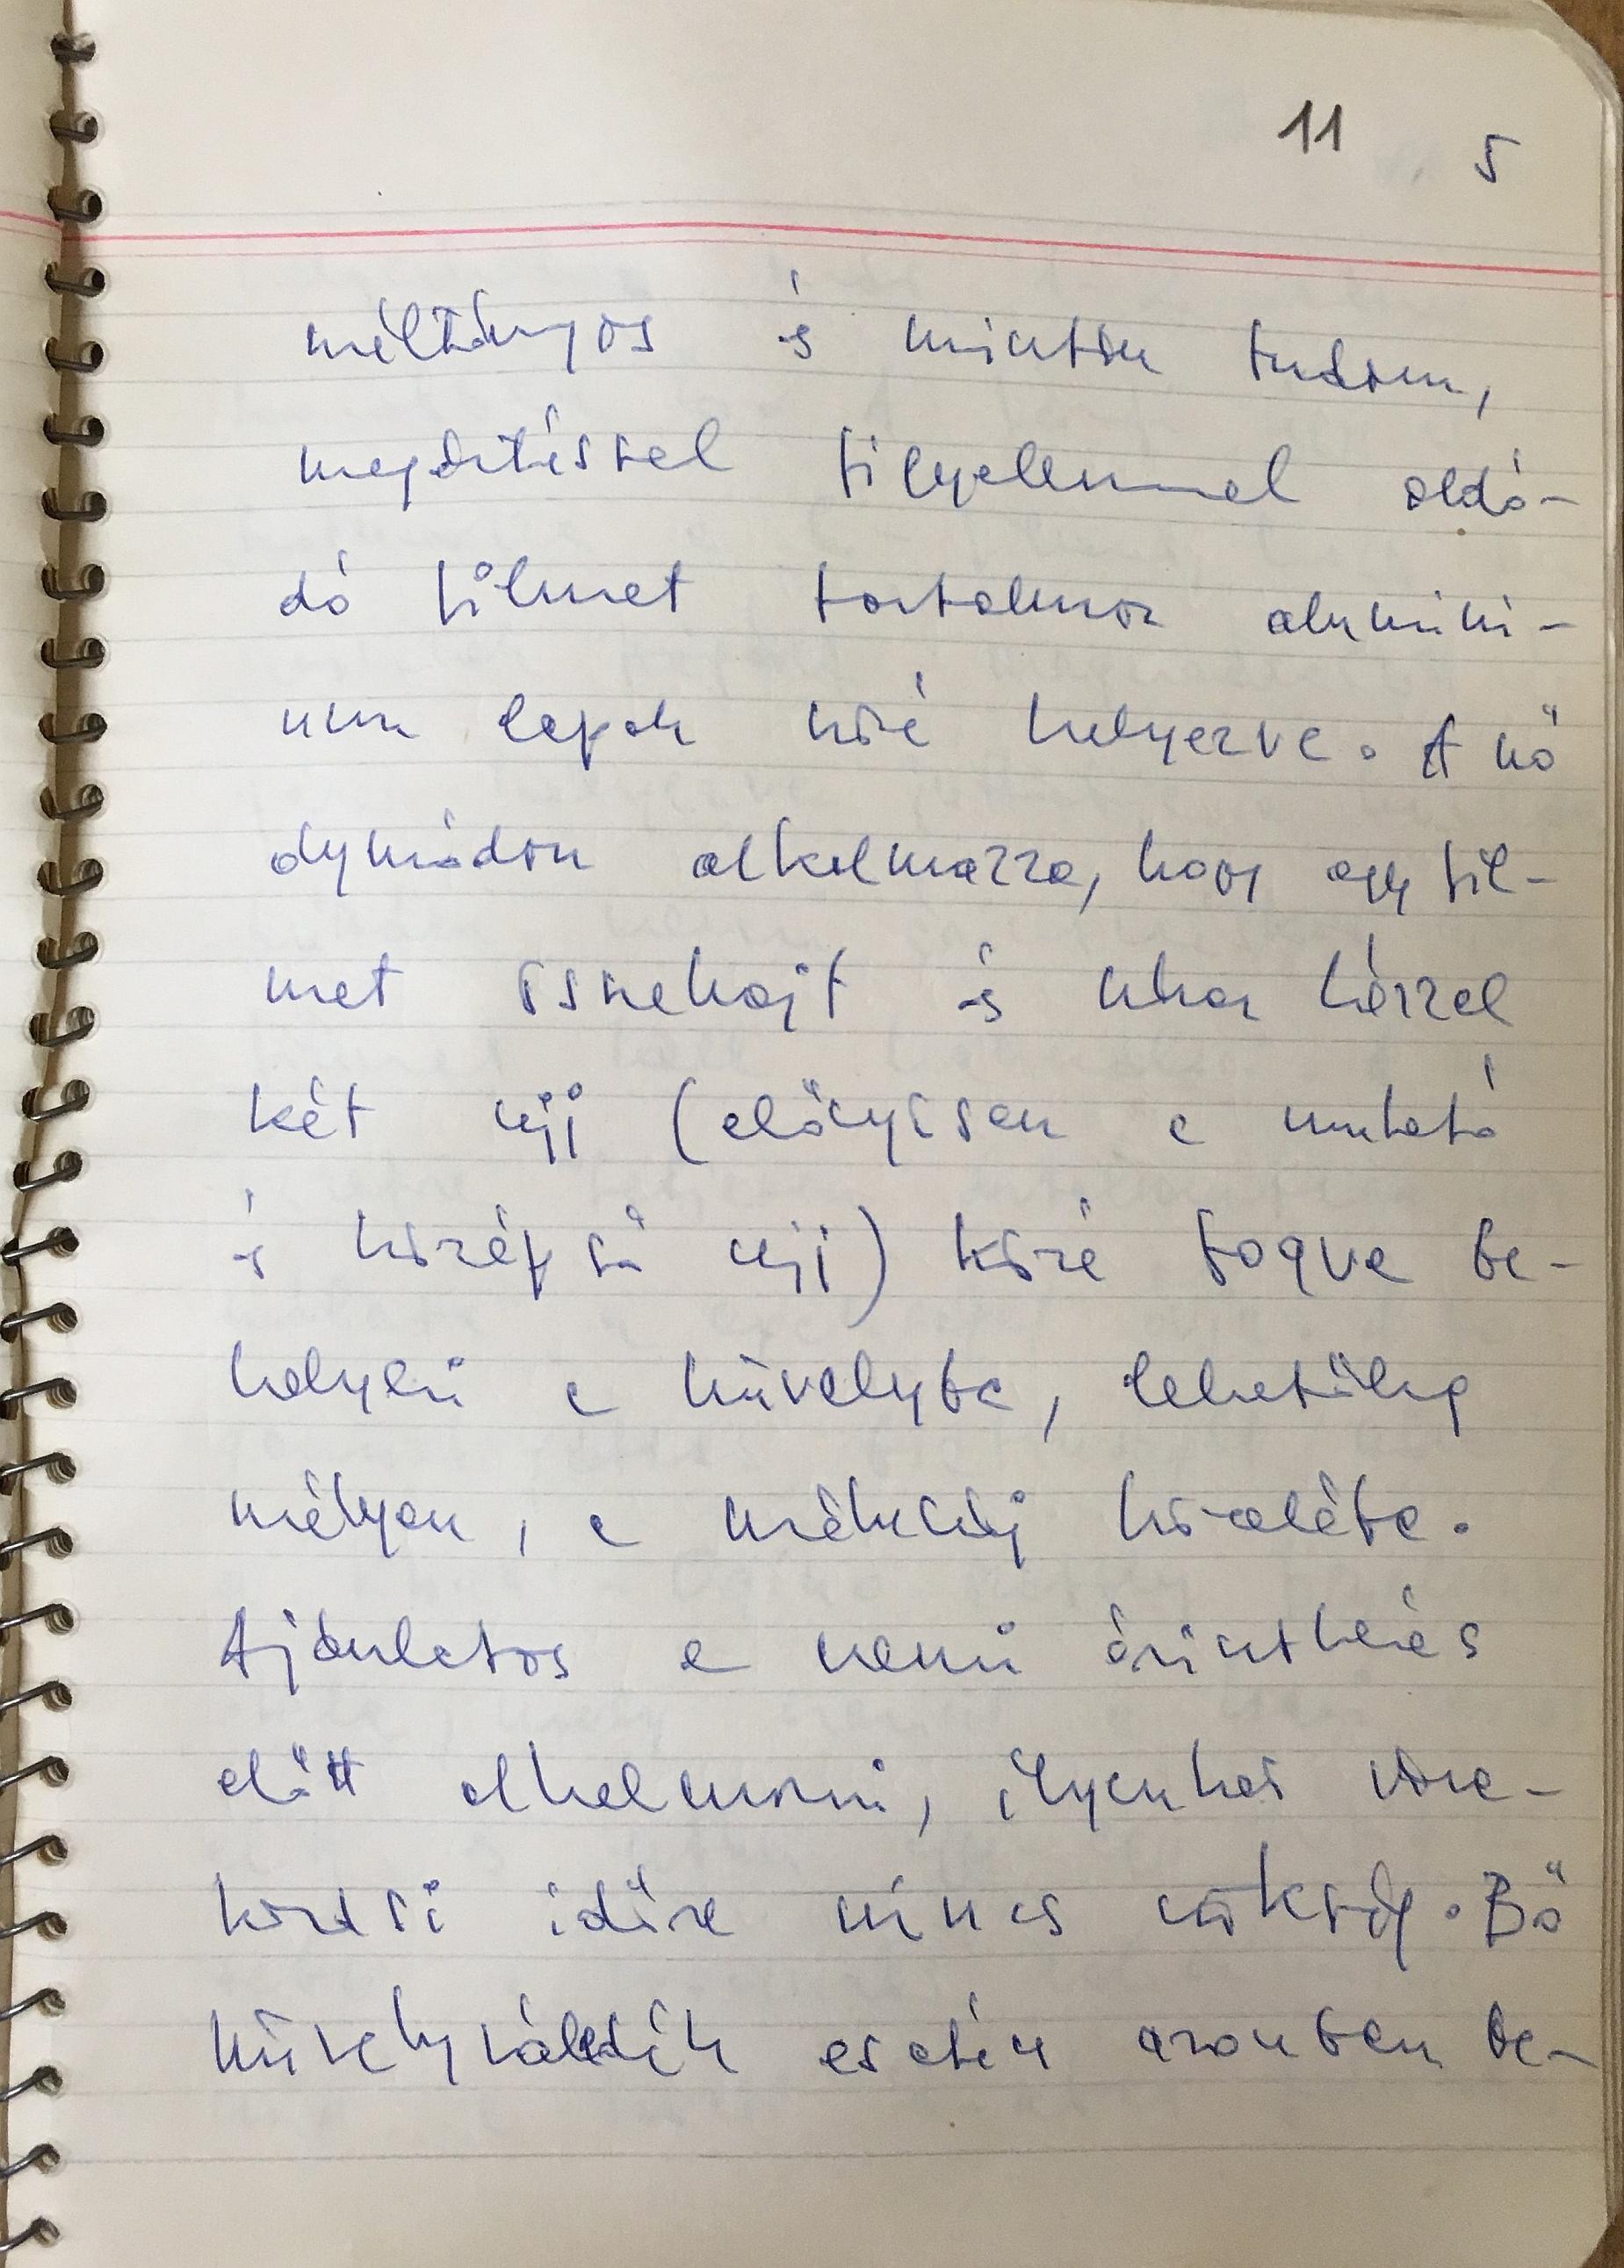 11 5
méltányos és mintsen tudom,
megértéssel figyelemmel oldó-
dó filmet tartalmaz alumini-
um lapok közé helyezve. A nő
olymódon alkalmazza, hogy egy fil-
met összehajt és száraz kézzel
két ujj (előnyösen a mutató
és középső ujj) közé fogva be-
helyezi a hüvelybe, lehetőleg
mélyen, a méhszáj közelébe.
Ajánlatos a nemi érintkezés
előtt alkalmazni, ilyenkor vára-
kozási időre nincs szükség. Bő
hüvelyváladék esetén azonban be-